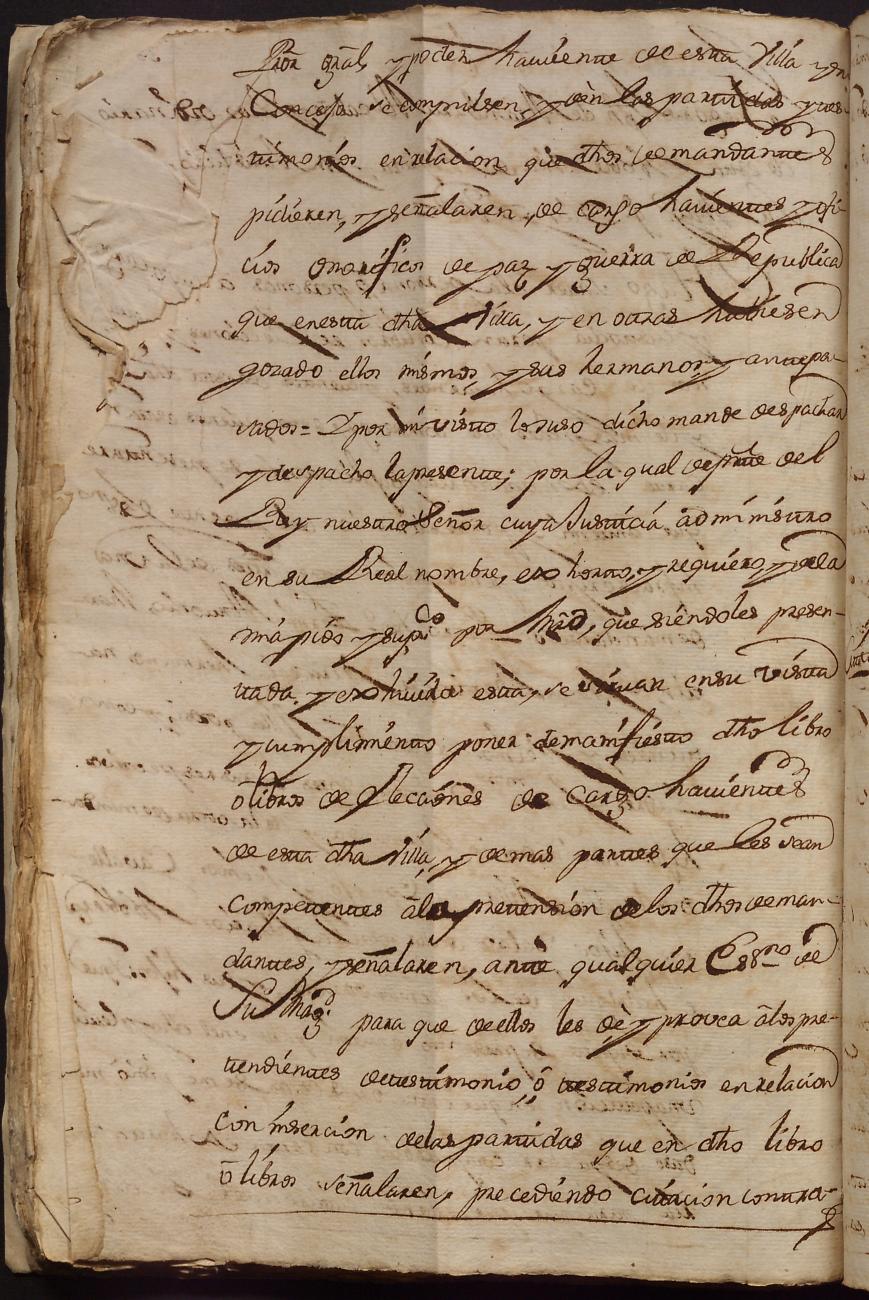 Pror gral, y poder haviente de esta Villa y su
Concejo se compulsen, y dèn las partidas y tes
timonios en relacion que dhos demandantes
pidieren, y señalaren, de cargo havientes y ofi-
cios onorificos de paz y guerra de Republica
que en esta dha Villa, y en otras hubiesen
gozado ellos mismos, y sus hermanos y antepa-
sados = Y por mi visto lo suso dicho mande despachar
y despacho la presente; por la qual de pte del
Rey nuestro Señor cuya Justicia administro
en su Real nombre, exhorto, y requiero, y de la
mia pido y supco por mrd, que siendoles presen-
tada y exhivida esta, se sirvan en su vista
y cumplimento poner de manifiesto dho libro
ò libros de Elecciones de Cargo havientes
de esta dha Villa, y demas partes que les sean
competentes à la pretensión de los dhos deman-
dantes, y señalaren, ante qualquier Essno de
Su Magd. para que de ellos les dè y provea à los pre-
tendientes de testimonio, ò testimonios en relacion
con inserción de las partidas que en dho libro
ò libros señalaren, precediendo citacion contra-